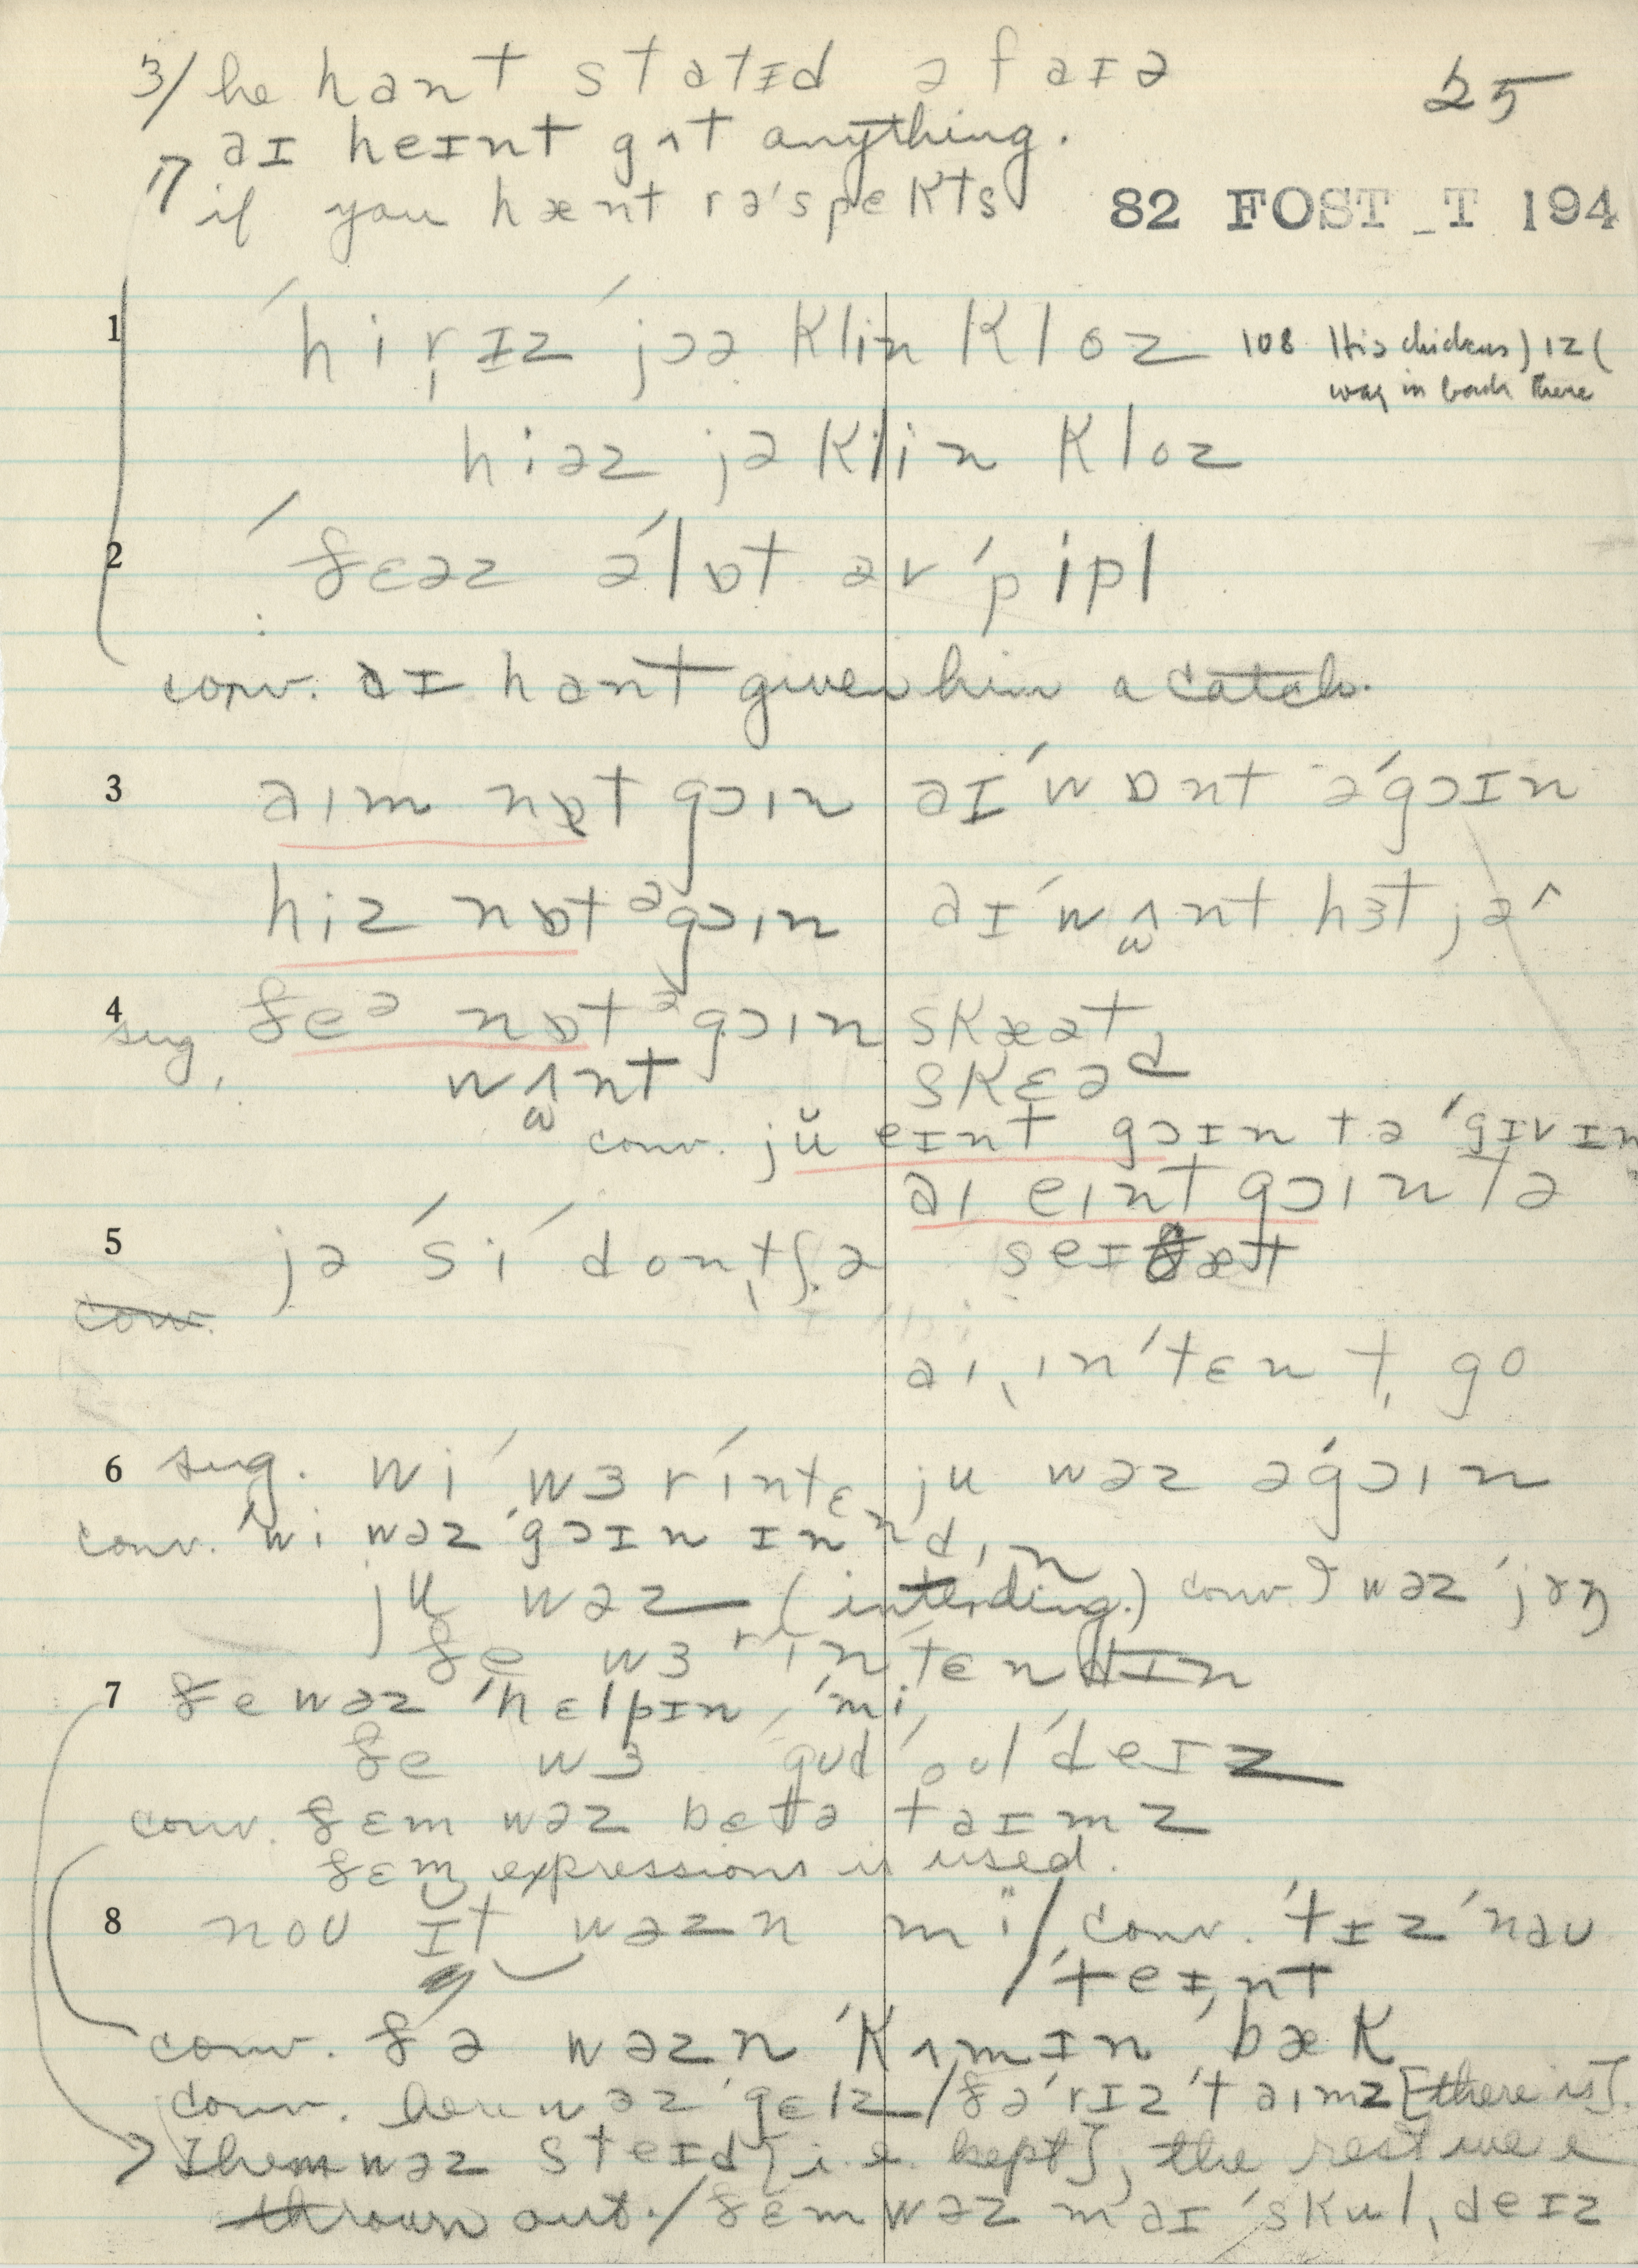 3/ he hant statɪd ə faɪə
25
aɪ heɪnt gʌt anything.
7 if you hænt rəˈspekts
82 FOST_T 194
1 ˈhirˌɪz ˈjɔə klin kloz 108 His chickens) ɪz (
way in back there
hiəz jə klin kloz
2 ˈðɛəz əˈlɒt əv ˈpipl
conv. aɪ hant given him a catch.
3 aɪm nɒt gɔɪn aɪ ˈwɒnt əˈgɔɪn
hiz nɒt əgɔɪn aɪ ˈwʌnt hɜt jə
4 sug. ðeə nɒt əgɔɪn skæət
wʌnt skɛəd
conv. jŭ eɪnt gɔɪn tə ˈgɪvɪn
aɪ eɪnt gɔɪn tə
5 jə ˈsi ˈdontʃə seɪ ðæt
conv.
aɪ ˌɪnˈtɛnt go
6 sug. wi ˈwɜr ˈɪntɛndˌɪn ju wəz əˈgɔɪn
conv. wi wəz ˈgɔɪn ɪn
ju wəz (intending.) conv. I wəz ˈjʌŋ
ðe wɜr ɪnˈtɛndɪn
7 ðe wəz ˈhɛlpɪn ˈmi
ðe wɜ gʊd ˈoʊl ˈdeɪz
conv. ðɛm wəz bɛtə taɪmz
ðɛmz expressions is used.
8 noʊ ɪt wəzn mi / conv. ˈtɪz ˈnaʊ
/ ˈteɪnt
conv. ðə wəzn ˈkʌmɪn ˈbæk
conv. here wəz gɛlz / ðə ˈrɪz ˈtaɪmz [there is].
Them wəz steɪd [i.e. kept], the rest were
thrown out. / ðɛm wəz maɪ ˈskulˌdeɪz